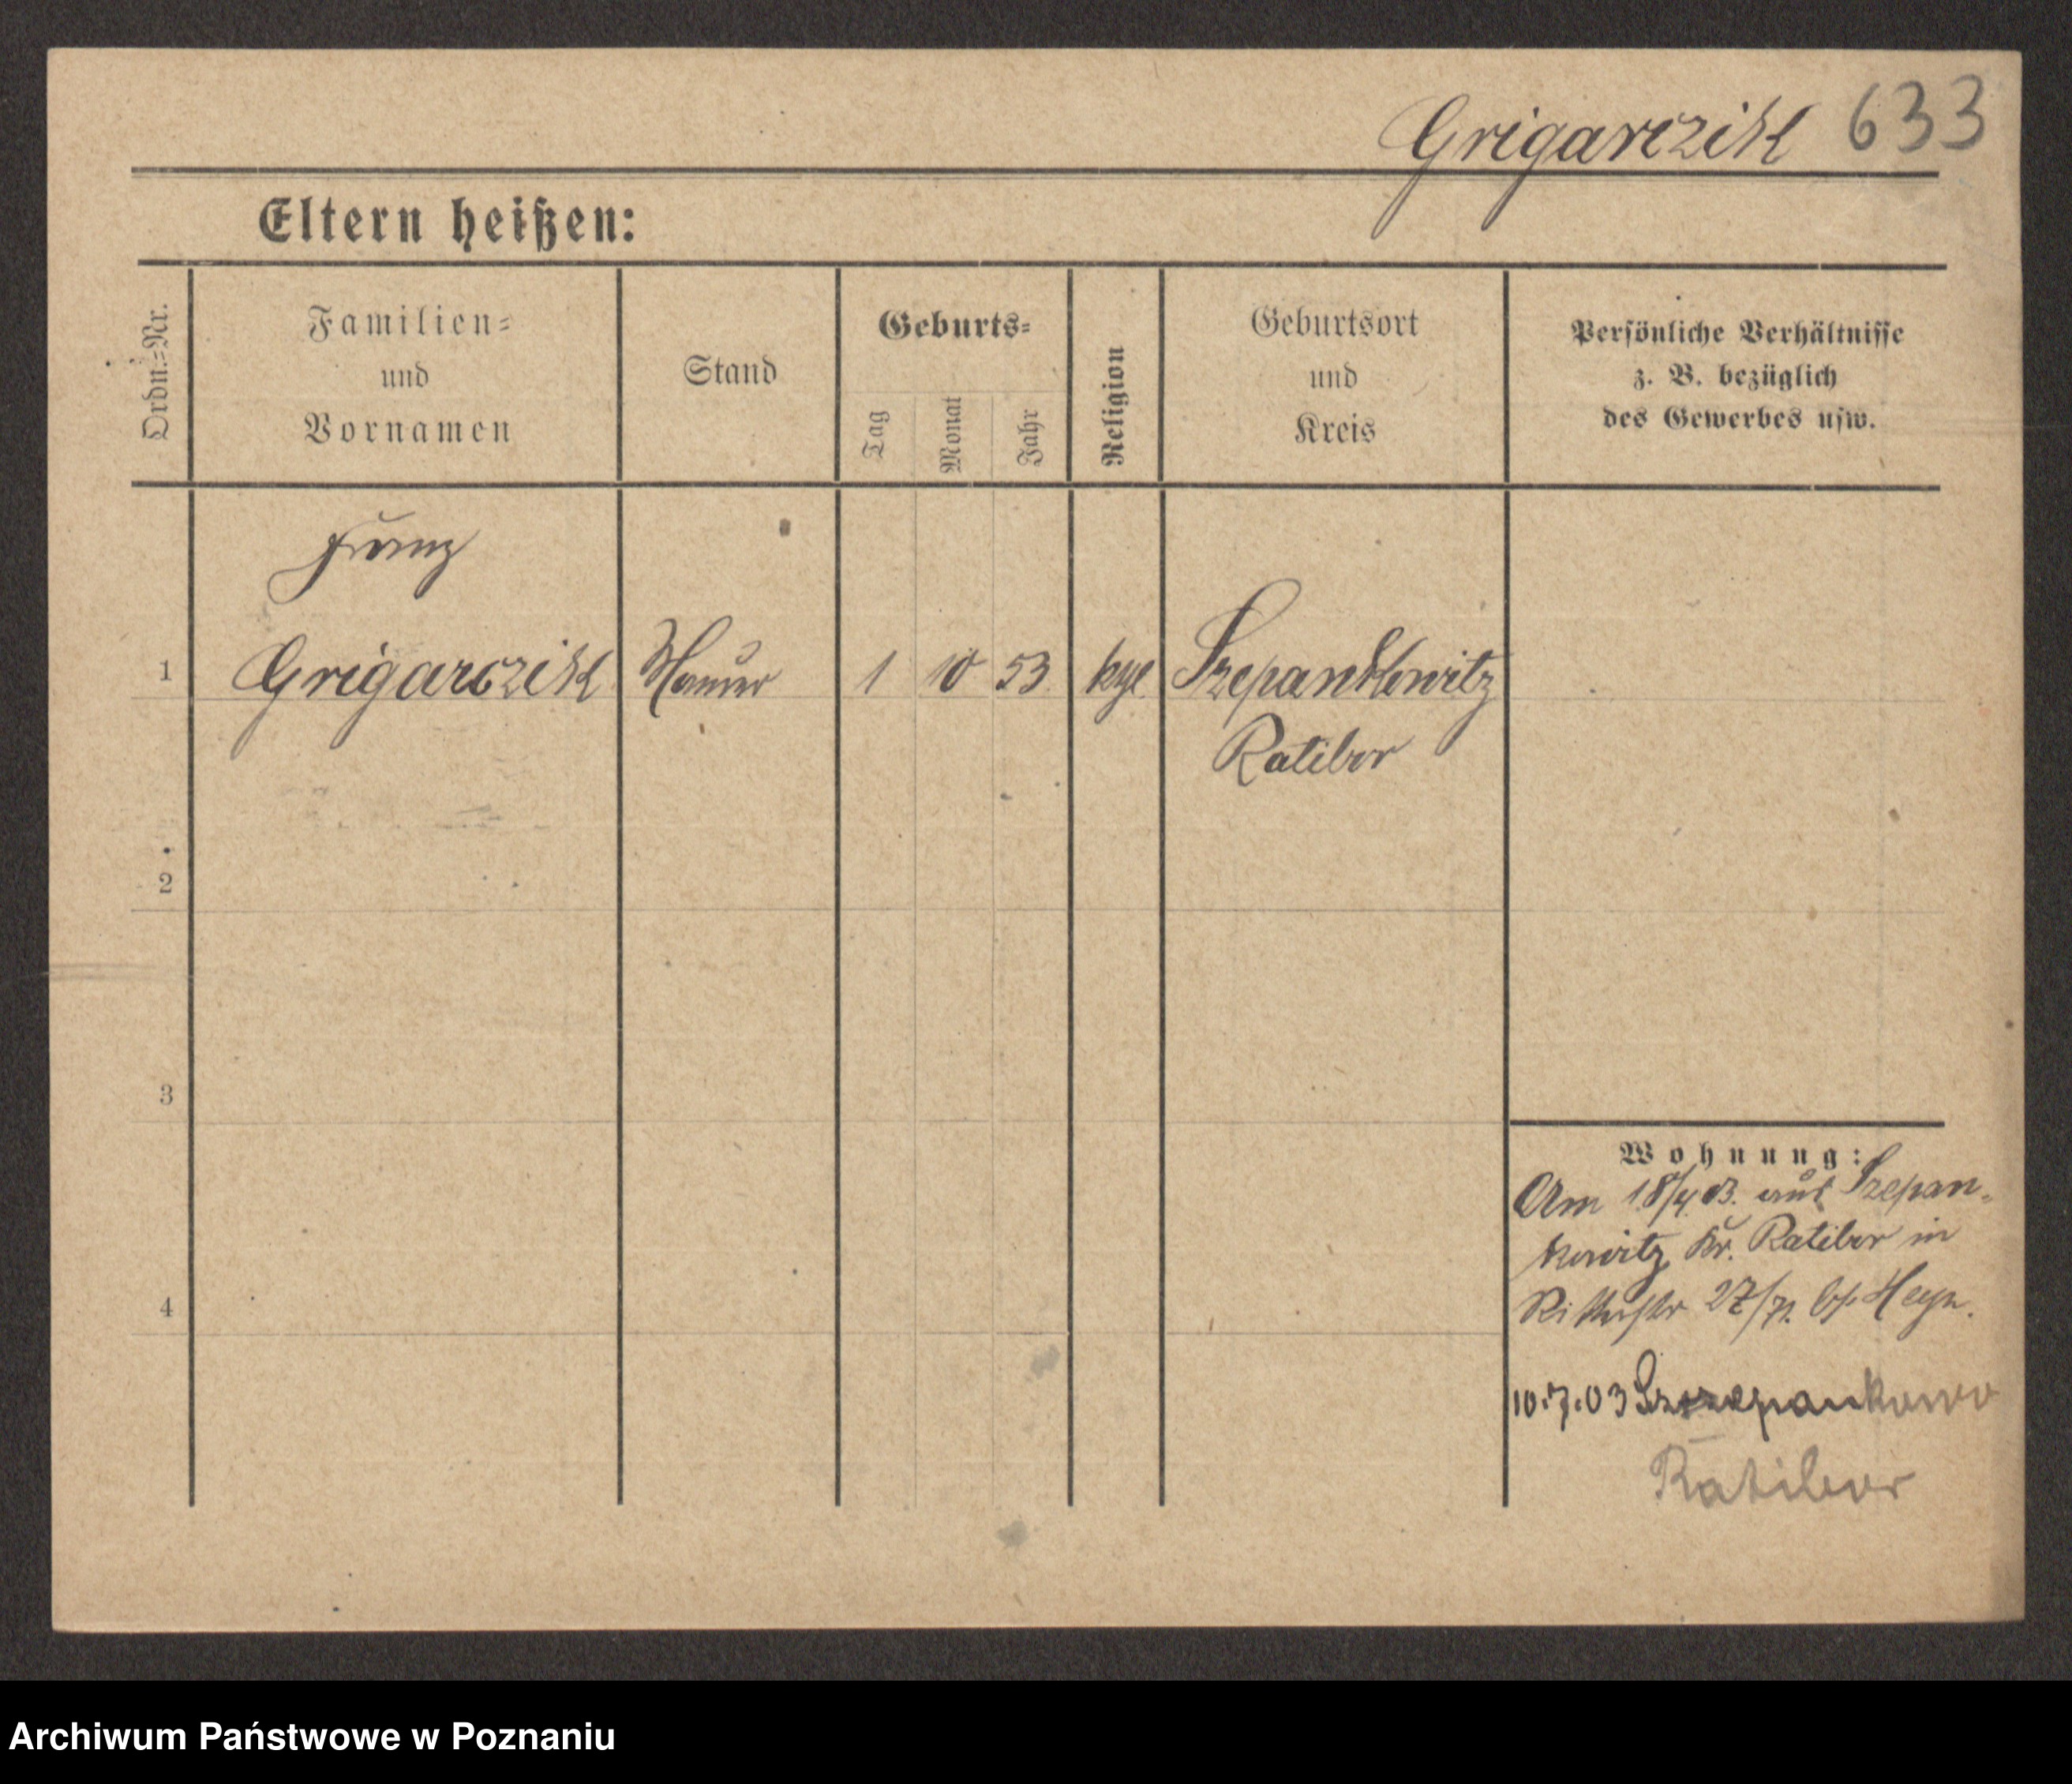 Grigarczik 633
Eltern heißen:
Ordn.=Nr.
Familien=
und
Vornamen
Stand
Geburts=
Tag
Monat
Jahr
Religion
Geburtsort
und
Kreis
Persönliche Verhältnisse
z. B. bezüglich
des Gewerbes usw.
Franz
1 Grigarczik Maurer 1 10 53 kgl Szepankowitz
Ratibor
2
3
4
Wohnung:
Am 18/4 03. aus Szepan-
kowitz Kr. Ratibor in
Ritterstr 27/ b/. Heyn.
10.7.03 Szczepankowo
Ratibor
Archiwum Państwowe w Poznaniu